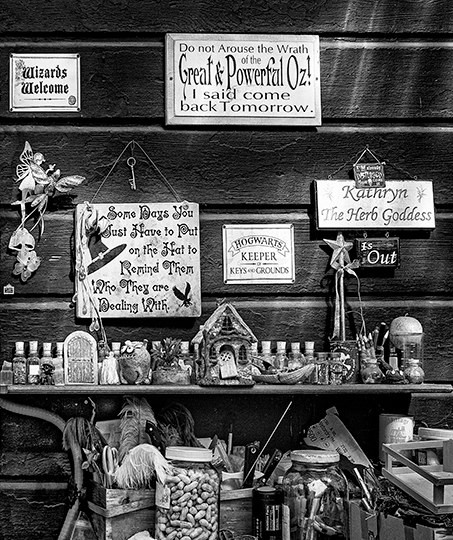 Wizards
Welcome
Do not Arouse the Wrath
of the
Great & Powerful Oz!
I said come
back Tomorrow.
Some Days You
Just Have to Put
on the Hat to
Remind Them
Who They are
Dealing With.
HOGWARTS
KEEPER
OF
KEYS AND GROUNDS
Kathryn
The Herb Goddess
Is
Out